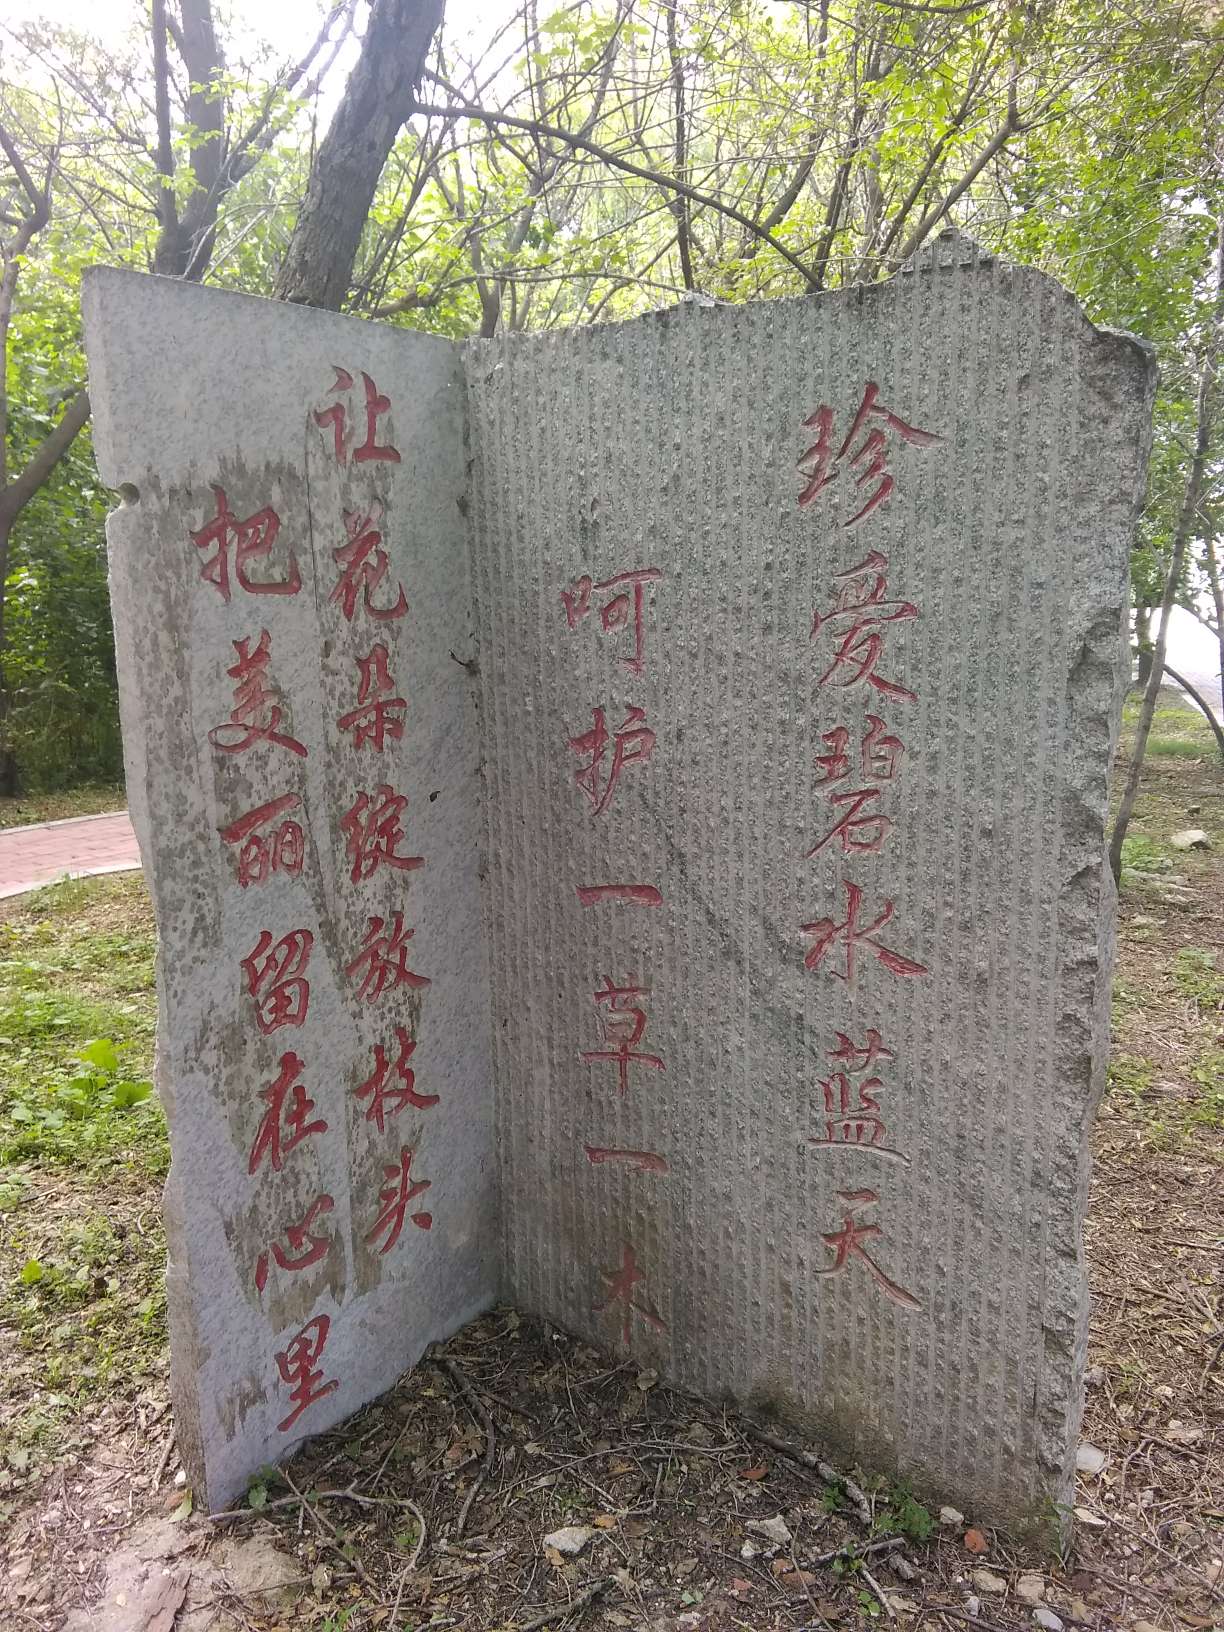 珍爱碧水蓝天
呵护一草一木
让花朵绽放枝头
把美丽留在心里